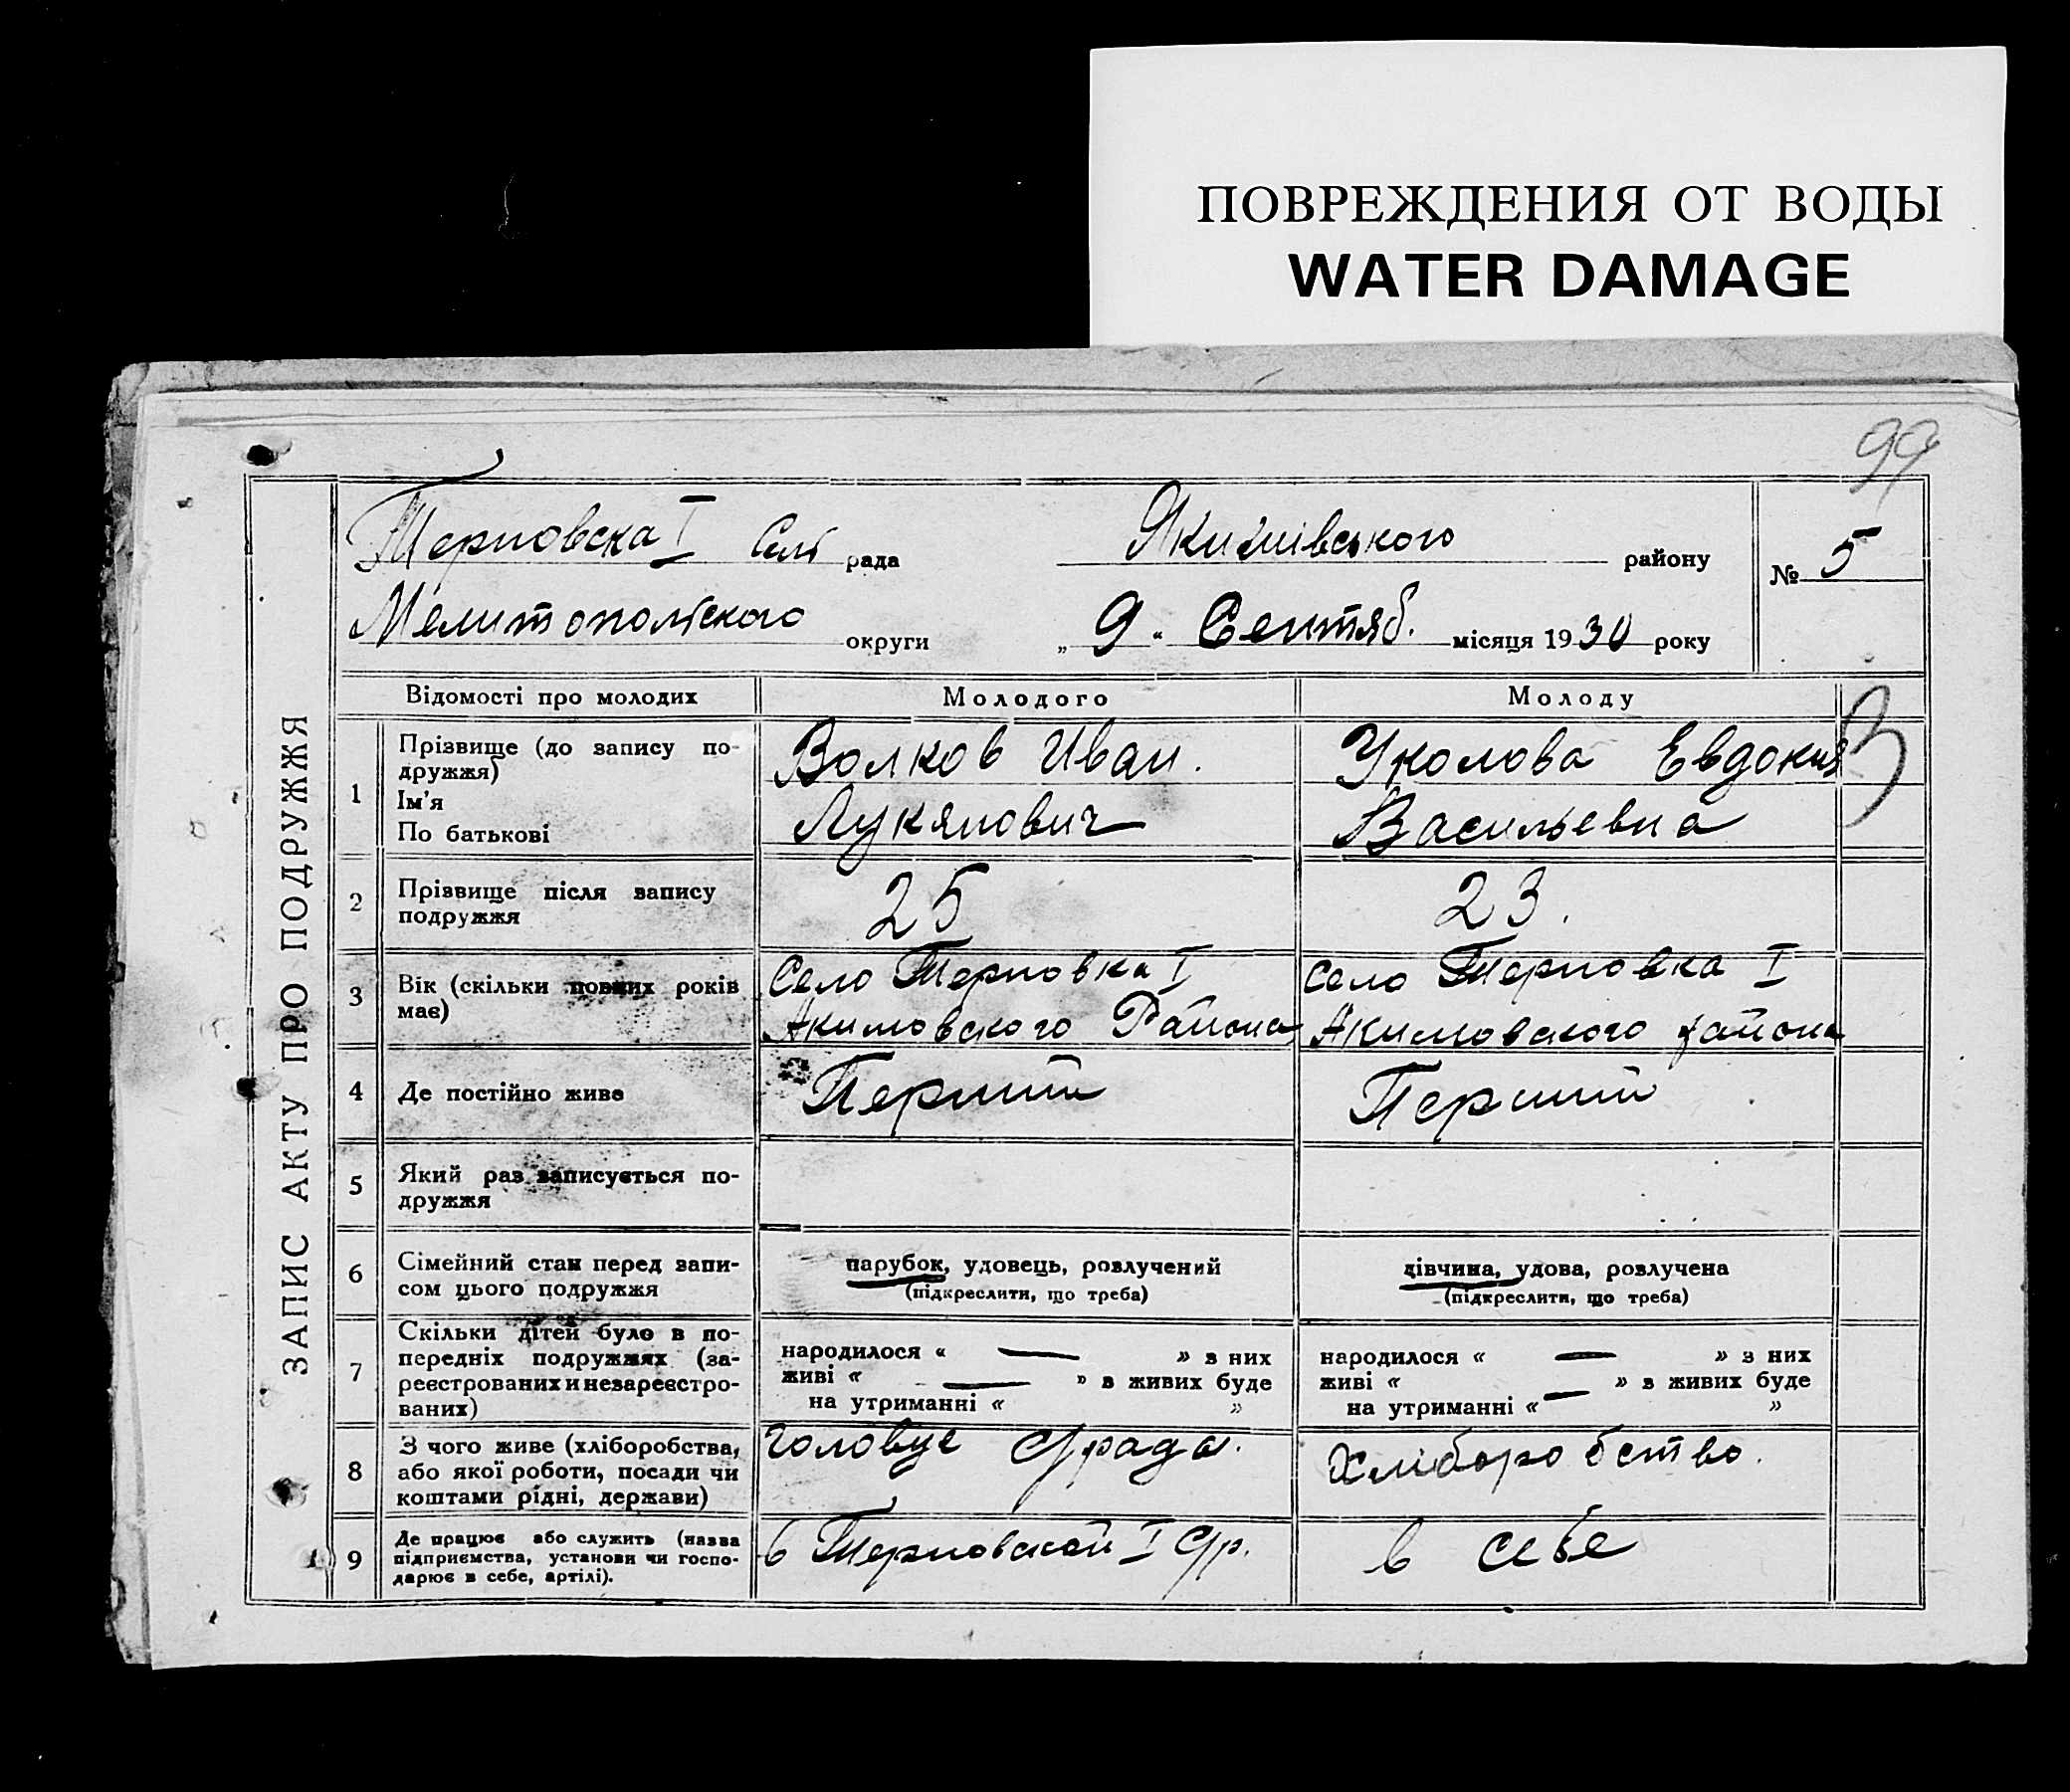 ПОВРЕЖДЕНИЯ ОТ ВОДЫ
WATER DAMAGE
99
ЗАПИС АКТУ ПРО ПОДРУЖЖЯ
Терновска I Сель рада
Якимівського району
№ 5
Мелитопольского округи
„ 9 " Сентяб. місяця 1930 року
Відомості про молодих
Молодого
Молоду
3
1
Прізвище (до запису по-
дружжя)
Ім'я
По батькові
Волков Иван.
Лукянович
Уколова Евдокия
Васильевна
2
Прізвище після запису
подружжя
25
23.
3
Вік (скільки повних років
має)
Село Терновка I
Акимовского Района
Село Терновка I
Акимовского района
4
Де постійно живе
Перший
Перший
5
Який раз записується по-
дружжя
6
Сімейний стан перед запи-
сом цього подружжя
парубок, удовець, розлучений
(підкреслити, що треба)
дівчина, удова, розлучена
(підкреслити, що треба)
7
Скільки дітей було в по-
передніх подружжях (за-
реєстрованих и незареєстро-
ваних)
народилося « — » з них
живі « — » з живих буде
на утриманні « »
народилося « — » з них
живі « » з живих буде
на утриманні « — »
8
З чого живе (хліборобства,
або якої роботи, посади чи
коштами рідні, держави)
головує с/рада.
Хліборобство.
9
Де працює або служить (назва
підприємства, установи чи госпо-
дарює в себе, артілі).
в Терновской I с/р.
в себе